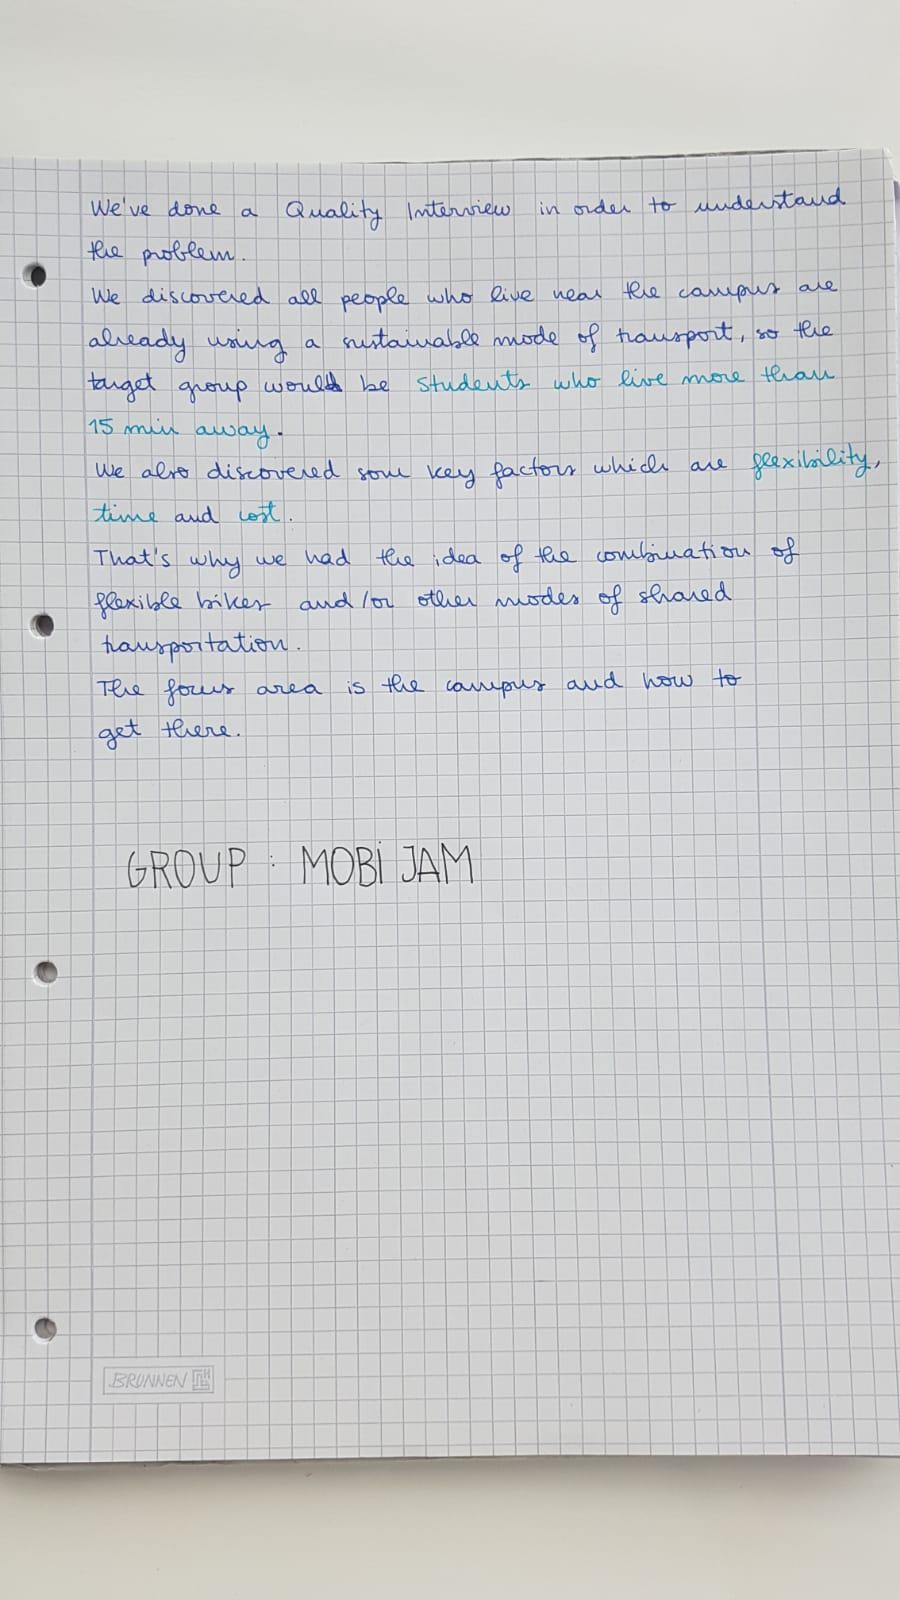 We've done a Quality Interview in order to understand
the problem.
We discovered all people who live near the campus are
already using a sustainable mode of transport, so the
target group would be students who live more than
15 min away.
We also discovered some key factors which are flexibility,
time and cost.
That's why we had the idea of the combination of
flexible bikes and/or other modes of shared
transportation.
The focus area is the campus and how to
get there.
GROUP : MOBI JAM
BRUNNEN